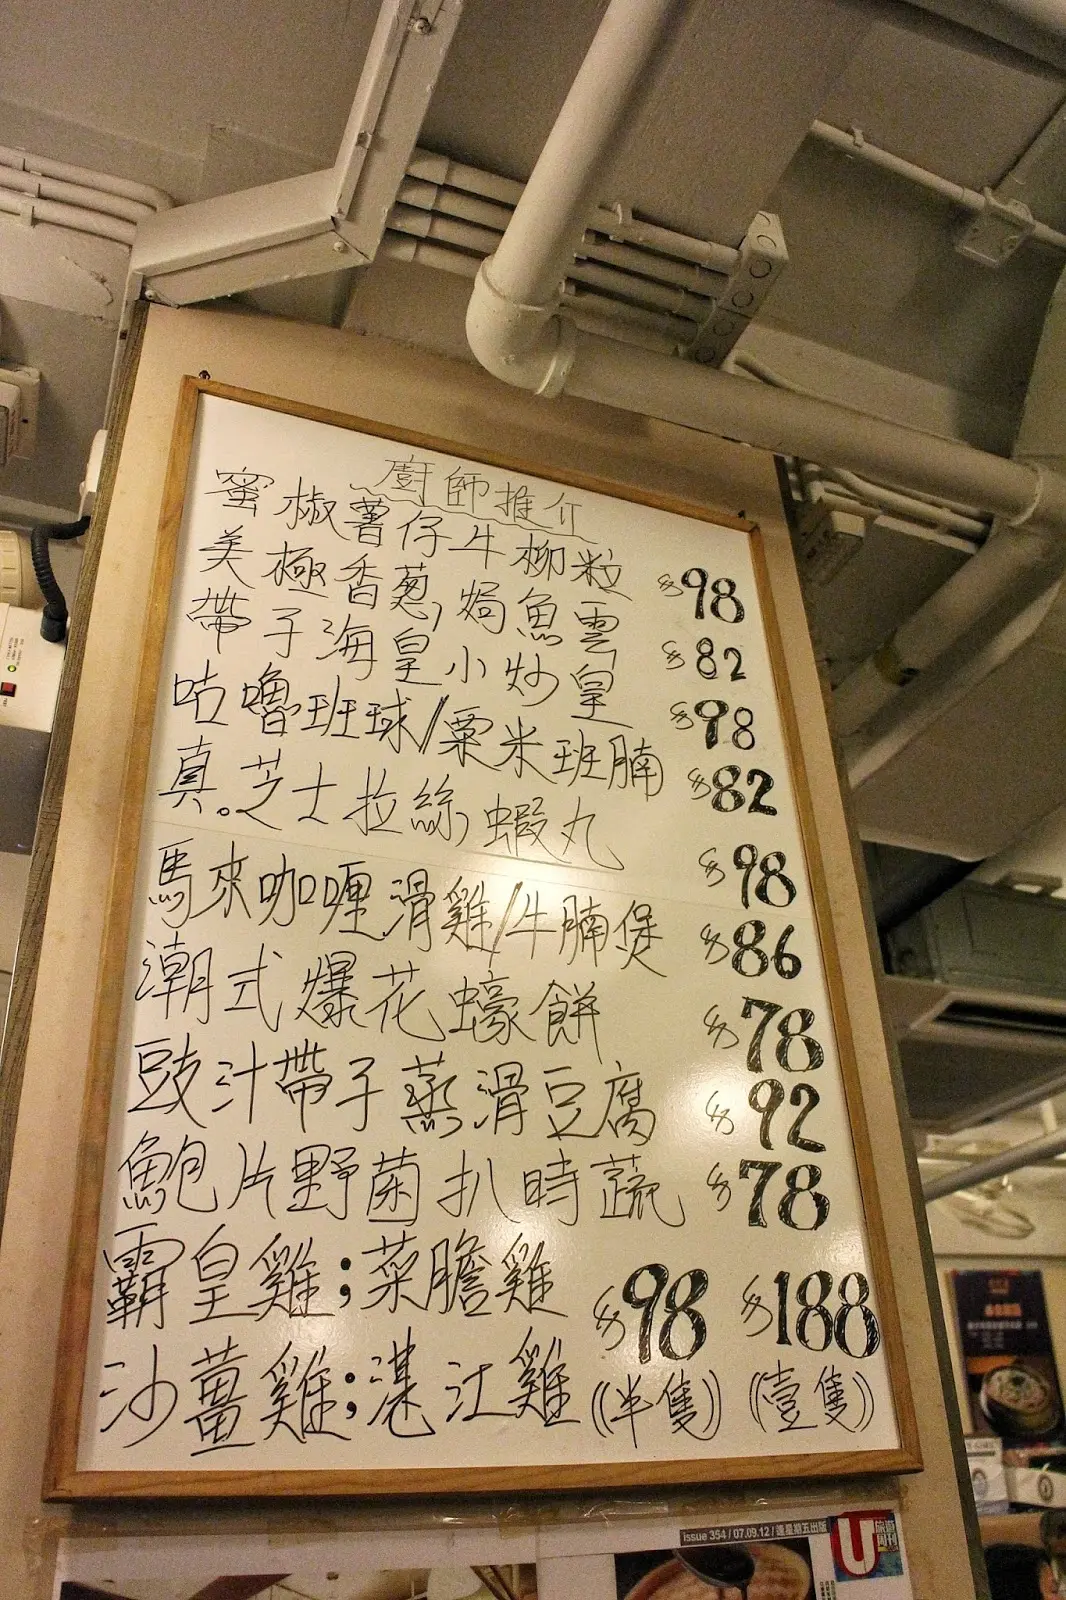 廚師推介
蜜椒薯仔牛柳粒 $98
美極香蔥焗魚雲 $82
帶子海皇小炒皇 $98
咕嚕班球/粟米班腩 $82
真芝士拉絲蝦丸 $98
馬來咖喱滑雞/牛腩煲 $86
潮式爆花蠔餅 $78
豉汁帶子蒸滑豆腐 $92
鮑片野菌扒時蔬 $78
霸皇雞;菜膽雞 $98 $188
沙薑雞;湛江雞 (半隻) (壹隻)
issue 354 / 07.09.12 / 逢星期五出版
U 旅遊周刊